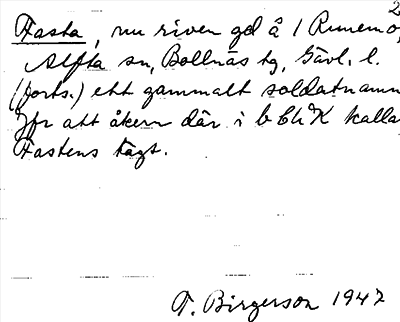 2
Hasta, nu riven gd å 1 Runemo,
Alfta sn, Bollnäs tg, Gävl. l.
(forts.) ett gammalt soldatnamn
Jfr att åkern där i kalla
Hastens tägt.
T. Birgerson 1947